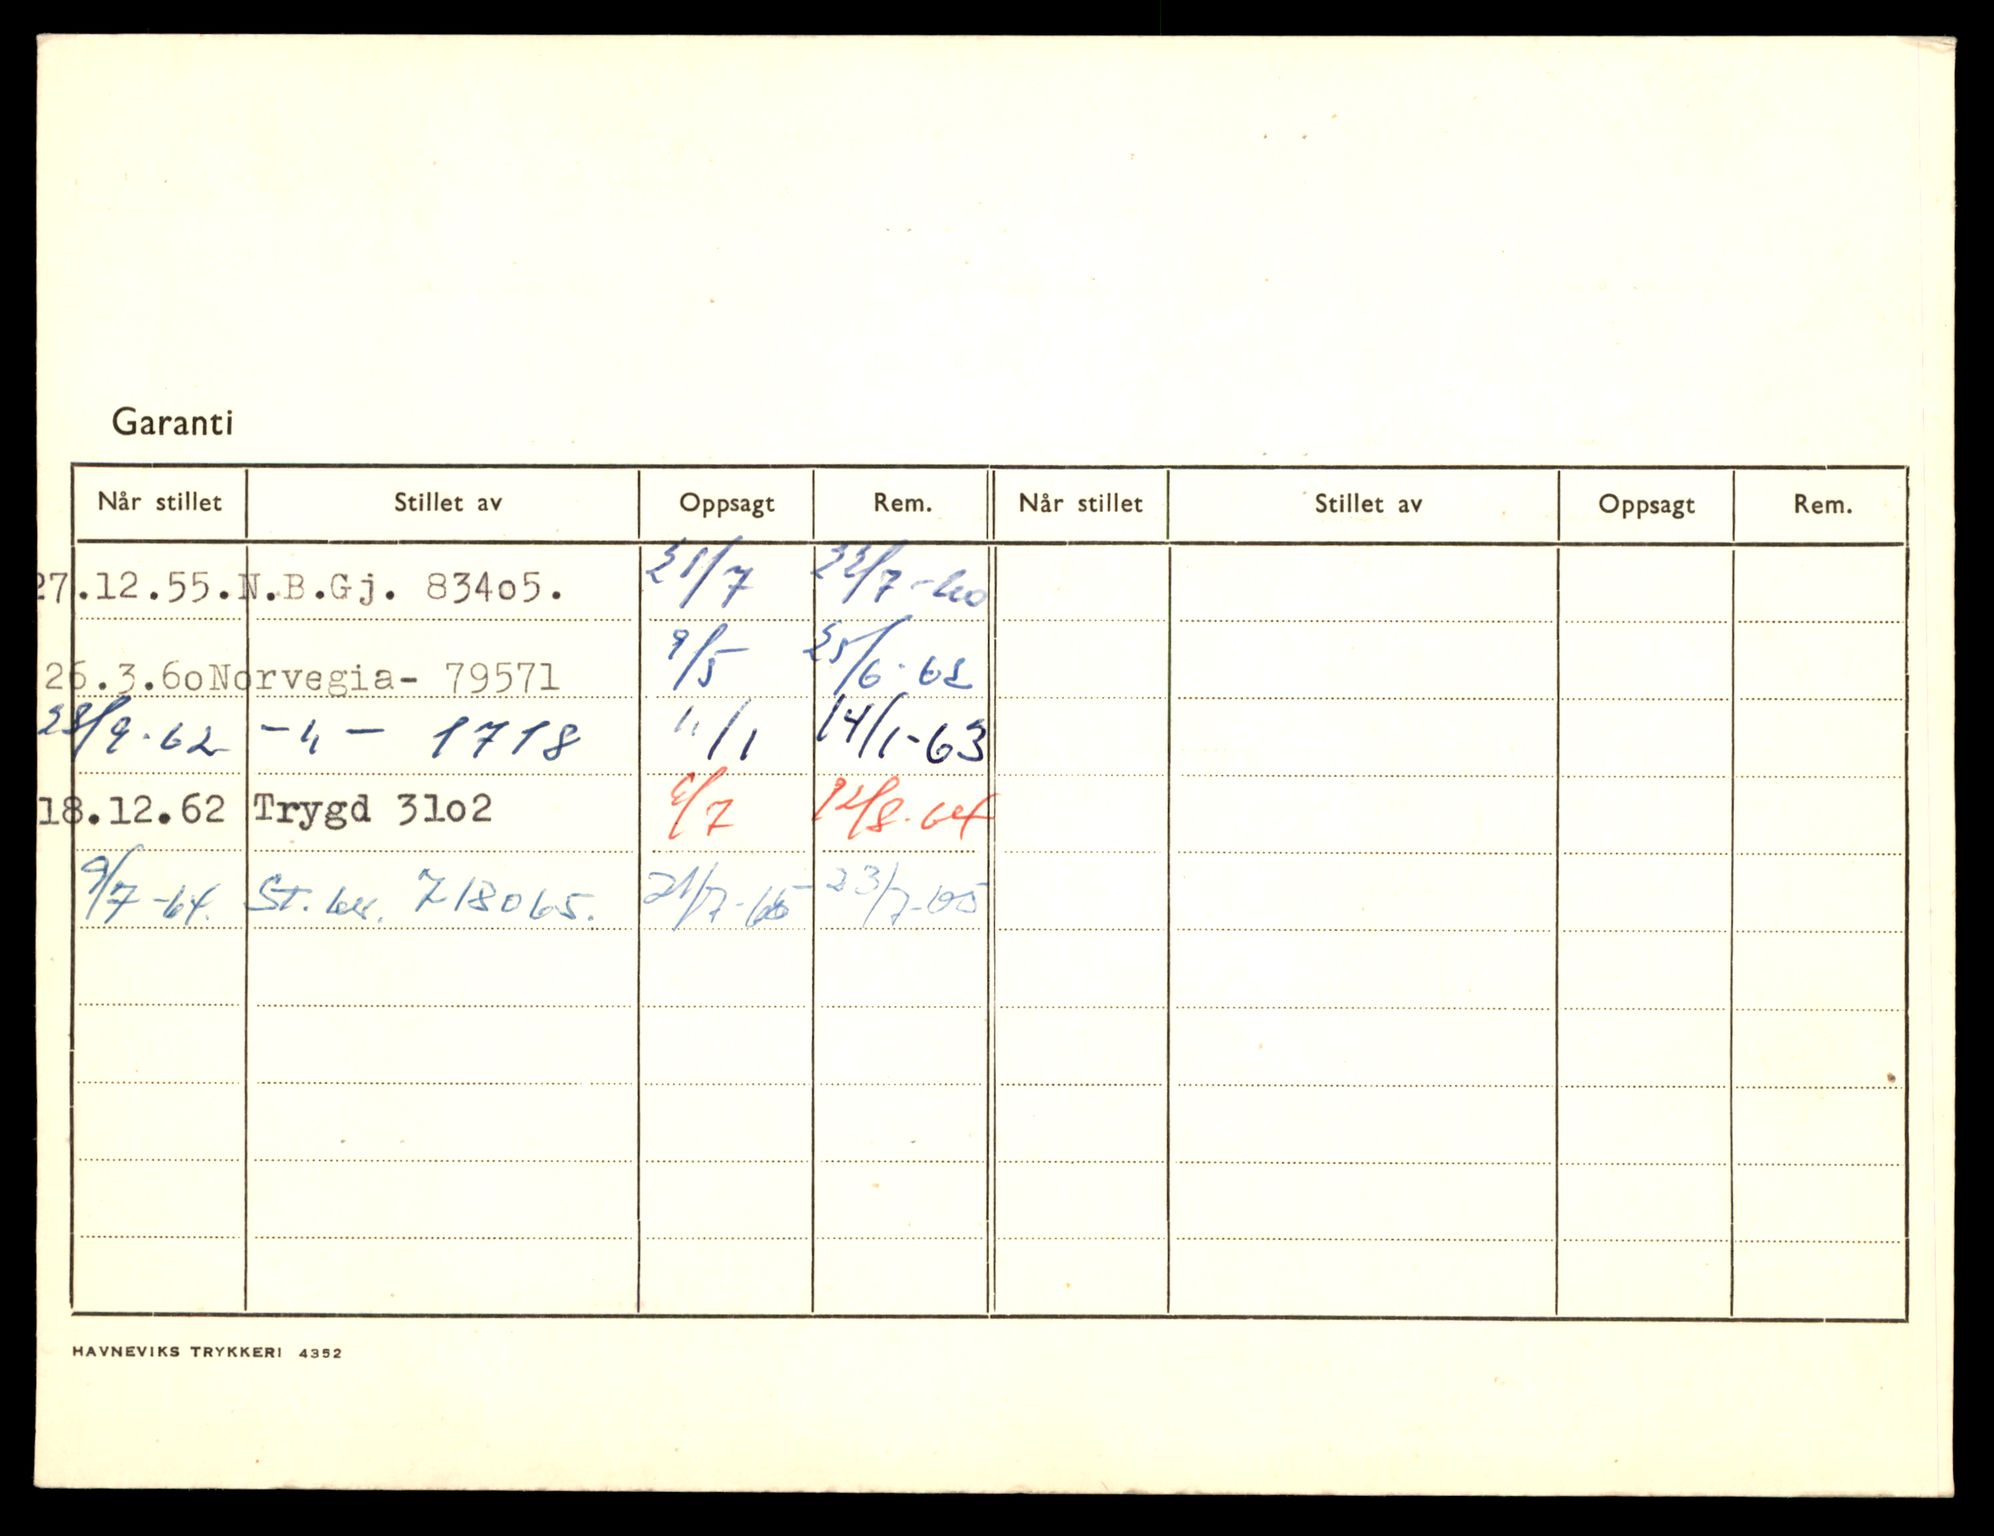 Garanti
Når stillet Stillet av Oppsagt Rem. Når stillet Stillet av Oppsagt Rem.
27.12.55. N.B.Gj. 834o5. 21/7 22/7-60
26.3.6o Norvegia- 79571 9/5 25/6-62
28/9-62 -"- 1718 11/1 14/1-63
18.12.62 Trygd 31o2 8/7 12/8-64
9/7-64. St.br. 718065. 21/7-65 23/7-65
HAVNEVIKS TRYKKERI 4352